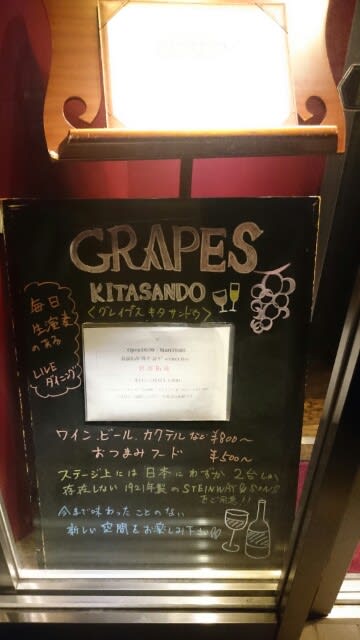 GRAPES
KITASANDO
〈グレイプス キタサンドウ〉
毎日
生演奏
のある
LIVE
ダイニング
ワイン、ビール、カクテルなど ¥800〜
おつまみフード ¥500〜
ステージ上には 日本にわずか 2台しか
存在しない 1921年製の STEINWAY & SONS
をご用意!!
今まで味わったことのない
新しい空間をお楽しみ下さい